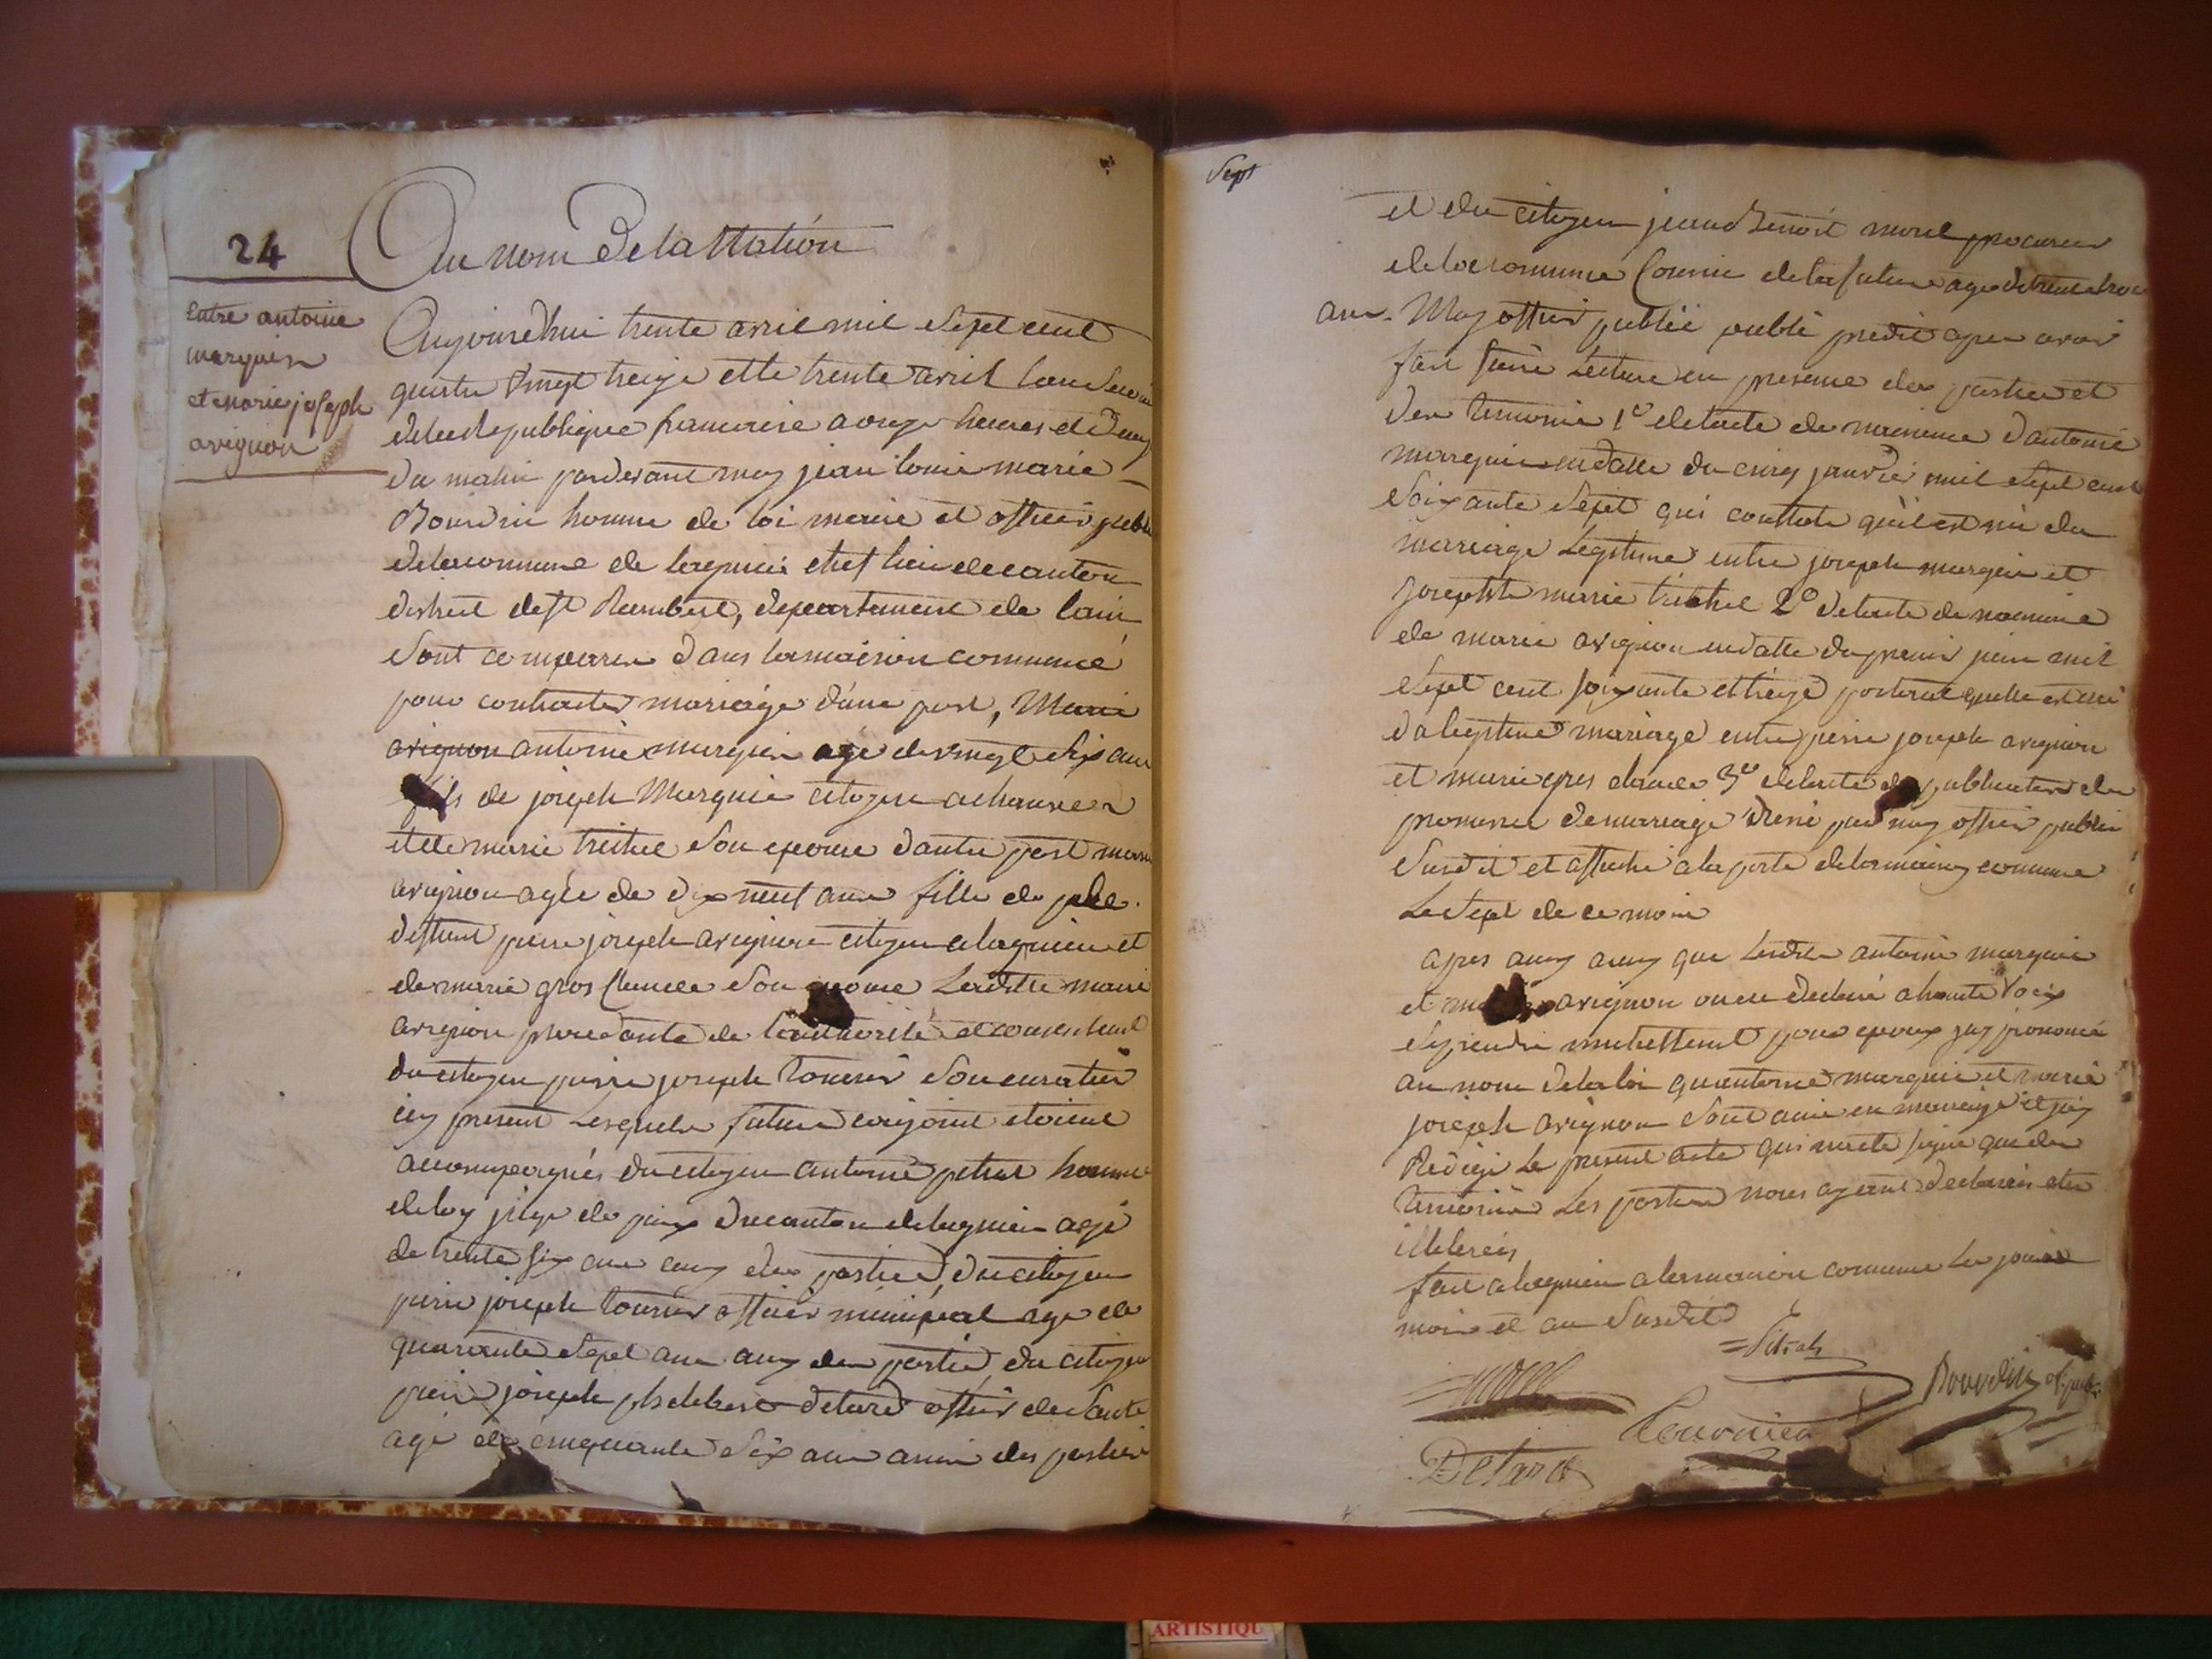 24
Au nom De la Nation
Entre antoine
marguin
et marie joseph
avignon
Aujourdhui trente avril mil Sept cent
quatre Vingt treize et le trente avril lan Second
de la Republique francaise a onze heures et Demy
du matin pardevant moy jean louis marie
Bourdin homme de loi maire et officier public
de la commune de lagnieu chef lieu de canton
district de St Rambert, departement de lain
Sont comparus dans la maison commune
pour contracter mariage d'une part, Marie
avignon antoine marguin agé de vingt Six ans
fils de joseph Marguin citoyen a
et de marie trichet Son epouse d'autre part marie
avignon agée de dix neuf ans fille de
deffunt pierre joseph avignon citoyen a lagnieu et
de marie gros claude Son epouse Laditte marie
avignon procedante de l'authorité et consentement
du citoyen pierre joseph tournier Son curateur
icy present Lesquels futurs conjoint etoient
accompagnés du citoyen antoine petrat homme
de loy juge de paix du canton de lagnieu agé
de trente Six ans amy des parties, du citoyen
pierre joseph tournier officier municipal agé de
quarante Sept ans amy des parties, du citoyen
pierre joseph detard officier de Santé
agé de cinquante Six ans amis des parties
Sept
et du citoyen jean Benoit morel procureur
de la commune Cousin de la future agé de trente trois
ans. Moy officier public predit apres avoir
fait faire Lecture en presence des parties et
des temoins 1o de l'acte de naissance d'antoine
marguin en datte du cinq janvier mil Sept cent
Soixante Sept qui constate qu'il est né du
mariage Legitime entre joseph marguin et
marie trichet 2o de l'acte de naissance
de marie avignon en datte du premier juin mil
Sept cent Soixante et treize portant quelle est née
du legitime mariage entre pierre joseph avignon
et marie gros claude 3o de l'acte de publication de
promesse de mariage dressé par moy officier public
Susdit et affiché a la porte de la maison commune
Le Sept de ce mois
apres aussy que Lesdits antoine marguin
et marie avignon ont eu declaré a haute voix
Se prendre mutuellement pour epoux jay prononcé
au nom de la loi qu'antoine marguin et marie
joseph avignon Sont unis en mariage et jay
Redigé Le present acte qui n'a eté signé que des
temoins Les parties nous ayant declaré etre
illiterés
fait a lagnieu a la maison commune Les jour
mois et an Susdit
Petrat
morel
Bourdin of. public
Tournier
Detard
ARTISTIQU